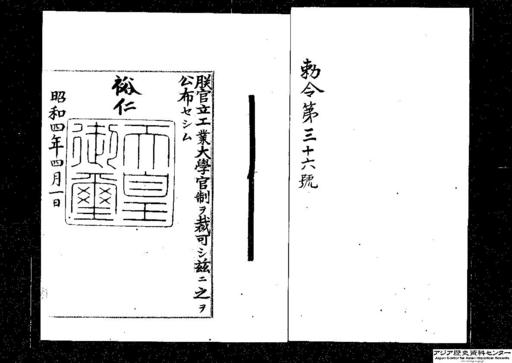 勅令第三十六號
朕官立工業大學官制ヲ裁可シ茲ニ之ヲ
公布セシム
裕仁
天皇御璽
昭和四年四月一日
アジア歴史資料センター
Japan Center for Asian Historical Records